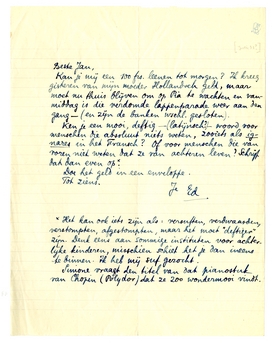 Beste Jan,
Kan je mij een 100 frs. leenen tot morgen? Ik kreeg
gisteren van mijn moeder Hollandsch geld, maar
moet nu thuis blijven om op Ria te wachten en van-
middag is die verdomde lappenparade weer aan den
gang — (en zijn de banken wschl. gesloten).
Ken je een mooi, deftig — (latijnsch) woord voor
menschen die absoluut niet weten, zooiets als ig-
nares in het Fransch? Of voor menschen die van
voren niet weten dat ze van achteren leven? Schrijf
dat dan even op.
Doe het geld in een enveloppe.
Tot ziens.
Je Ed
"Het kan ook iets zijn als: versuften, verdwaasden,
verstompten, afgestompten, maar het moet "deftiger"
zijn. Denk eens aan sommige instituten voor achter-
lijke kinderen, misschien schiet het je dan ineens
te binnen. Ik hel mij suf gezocht.
Simone vraagt den titel van dat pianostuk
van Chopin (Polydor) dat ze zoo wondermooi vindt.